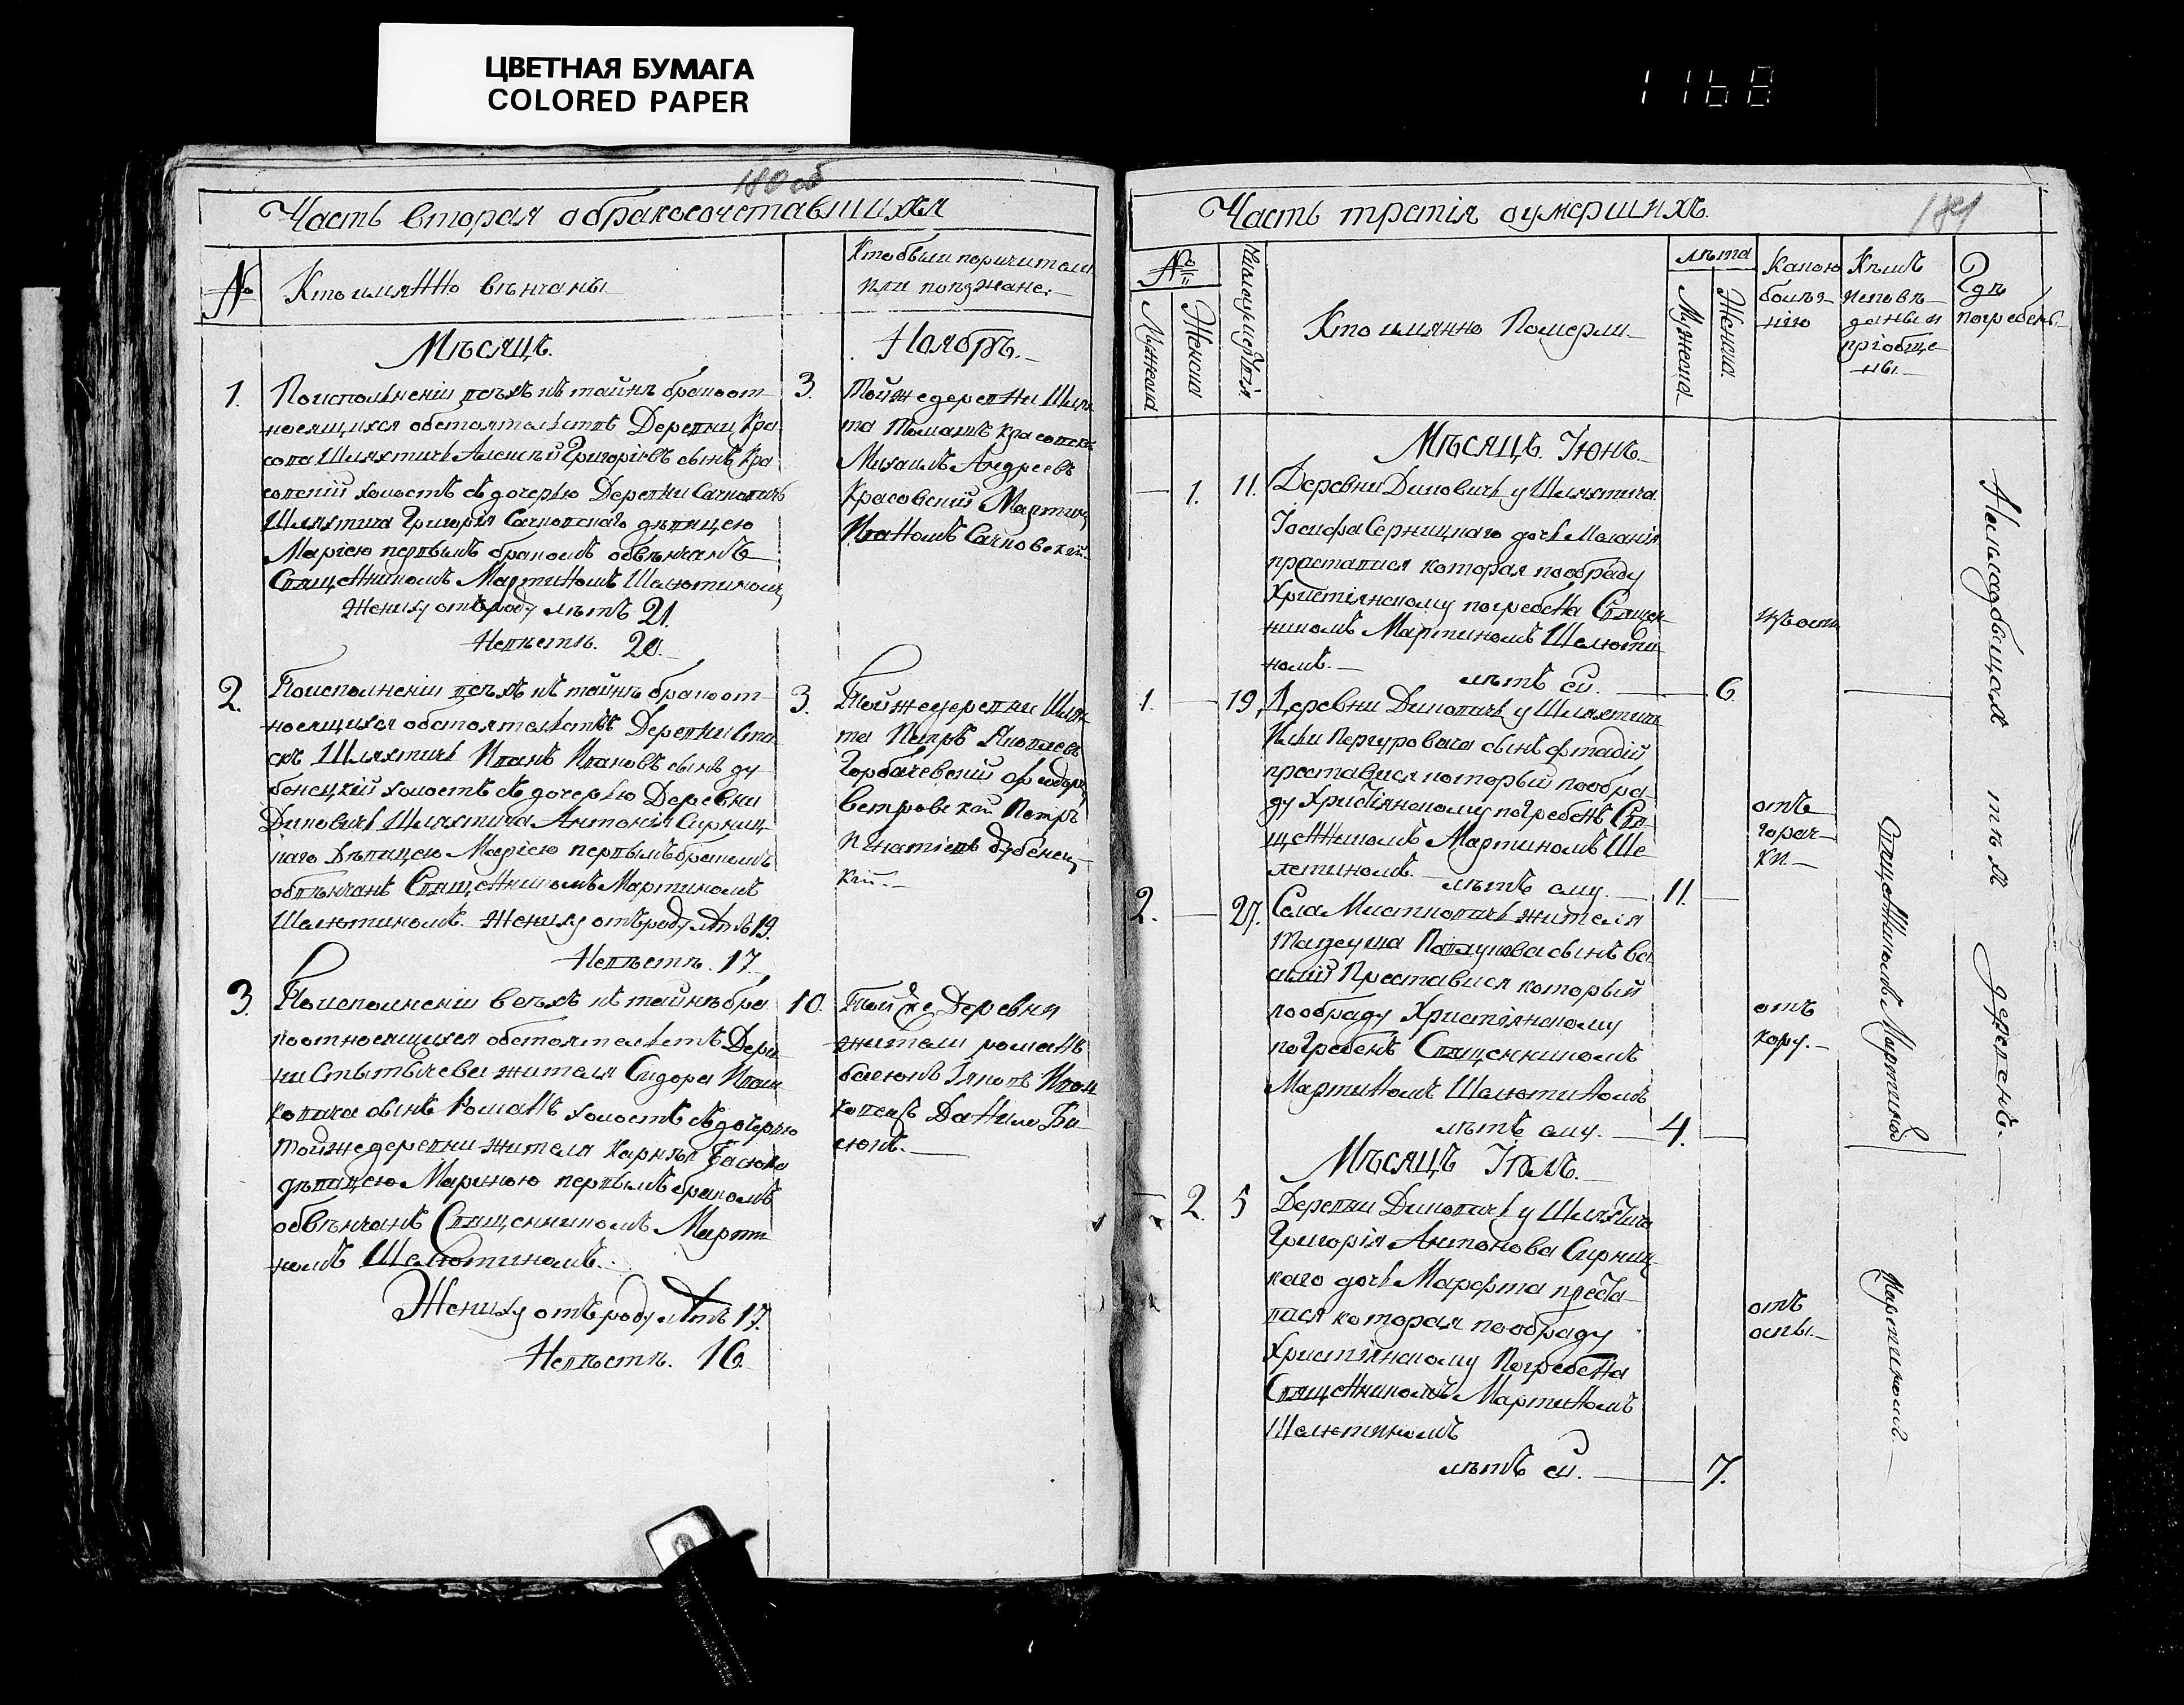 ЦВЕТНАЯ БУМАГА
COLORED PAPER
1168
180 об
Часть вторая о бракосочетавшихся
№
Кто имянно вѣнчаны
Кто были поручители
или поѣзжане.
Мѣсяцъ.
Ноябрь.
1.
По исполненіи всѣхъ къ тайнѣ брака от-
носящихся обстоятельствъ Деревни Кра
сова Шляхтичь Алексѣй Григорьевъ сынъ Кра
совскій холостъ съ дочерью Деревни Сачковичь
Шляхтича Григорія Сачковскаго дѣвицею
Маріею первымъ бракомъ обвѣнчанъ
Священникомъ Мартиномъ Шелютиномъ
Жениху отъ роду лѣтъ 21.
Невѣстѣ. 20.
3.
Той же деревни Шлях
та Романъ Красовскій
Михаилъ Андреевъ
Красовскій Мартинъ
Сачковскій.
2.
По исполненіи всѣхъ къ тайнѣ брака от-
носящихся обстоятельствъ Деревни
Шляхтичь Иванъ Ивановъ сынъ Ду-
бенецкій холостъ съ дочерью Деревни
Диновичь Шляхтича Антонія Сирниц-
каго Дѣвицею Маріею первымъ бракомъ
обвѣнчанъ Священникомъ Мартиномъ
Шелютиномъ. Жениху отъ роду лѣтъ 19.
Невѣстѣ. 17.
3.
Той же деревни Шлях-
та Петръ Яковлевъ
Горбачевскій Феодоръ
Ветровскій Петръ
Игнатіевъ Дубенец-
кій.
3.
По исполненіи всѣхъ къ тайнѣ бра
ка относящихся обстоятельствъ Дерев-
ни Стытычева жителя Сидора
сынъ Романъ холостъ съ дочерью
той же деревни жителя Карнѣя Басюка
дѣвицею Мариною первымъ бракомъ
обвѣнчанъ Священникомъ Марти
номъ Шелютиномъ.
Жениху отъ роду лѣтъ 17.
Невѣстѣ. 16
10.
Той же Деревни
жители Романъ
Басюкъ Яковъ
Данило Ба-
сюкъ.
Часть третія о умершихъ.
181
№
Мужеска
Женска
Кто имянно Померли
лѣта
Мужеска
Женска
Какою
болѣз-
нію
Кѣмъ
исповѣ-
даны и
пріобще-
ны.
Гдѣ
погребены
Мѣсяцъ. Іюнь.
1. 11.
Деревни Диновичь у Шляхтича
Іосифа Серницкаго дочь Меланія
преставися которая по обраду
Христіянскому погребена Священ-
никомъ Мартиномъ Шелюти-
номъ.
лѣтъ ей. 6.
1. 19.
Деревни Диновичь у Шляхтича
сынъ
преставися который по обра-
ду Христіянскому погребенъ Свя-
щенникомъ Мартиномъ Ше-
лютиномъ.
лѣтъ ему. 11.
отъ
горяч-
ки
2. 27.
Села Мистковичь жителя
сынъ Ва
силій Преставися который
по обраду Христіянскому
погребенъ Священникомъ
Мартиномъ Шелютиномъ
лѣтъ ему. 4.
отъ
кору.
Мѣсяцъ Іюль.
2. 5
Деревни Диновичь у Шляхтича
Григорія Антонова Сирниц-
каго дочь Марфта преста-
вися которая по обраду
Христіянскому Погребена
Священникомъ Мартиномъ
Шелютиномъ
лѣтъ ей. 7.
отъ
оспы.
Священникомъ Мартиномъ
На кладбищахъ тѣхъ деревень.